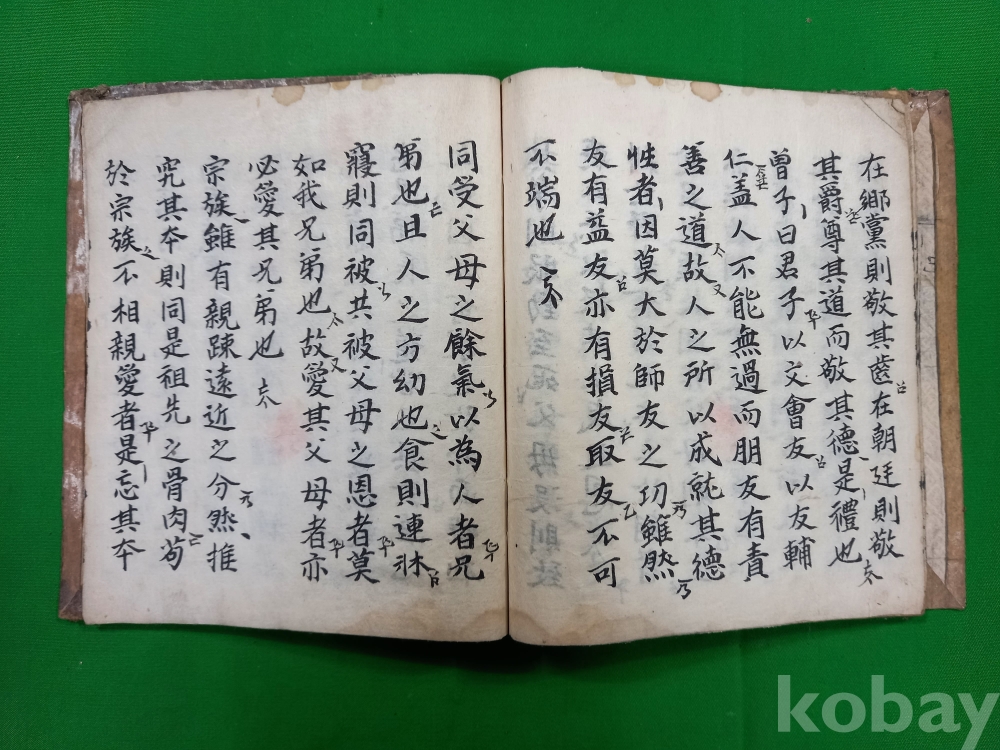 在鄉黨則敬其齒在朝廷則敬
其爵尊其道而敬其德是禮也
曾子曰君子以文會友以友輔
仁盖人不能無過而朋友有責
善之道故人之所以成就其德
性者因莫大於師友之功雖然
友有益友亦有損友取友不可
不端也
同受父母之餘氣以為人者兄
弟也且人之方幼也食則連牀
寢則同被共被父母之恩者莫
如我兄弟也故愛其父母者亦
必愛其兄弟也
宗族雖有親踈遠近之分然推
究其夲則同是祖先之骨肉苟
於宗族不相親愛者是忘其夲
kobay